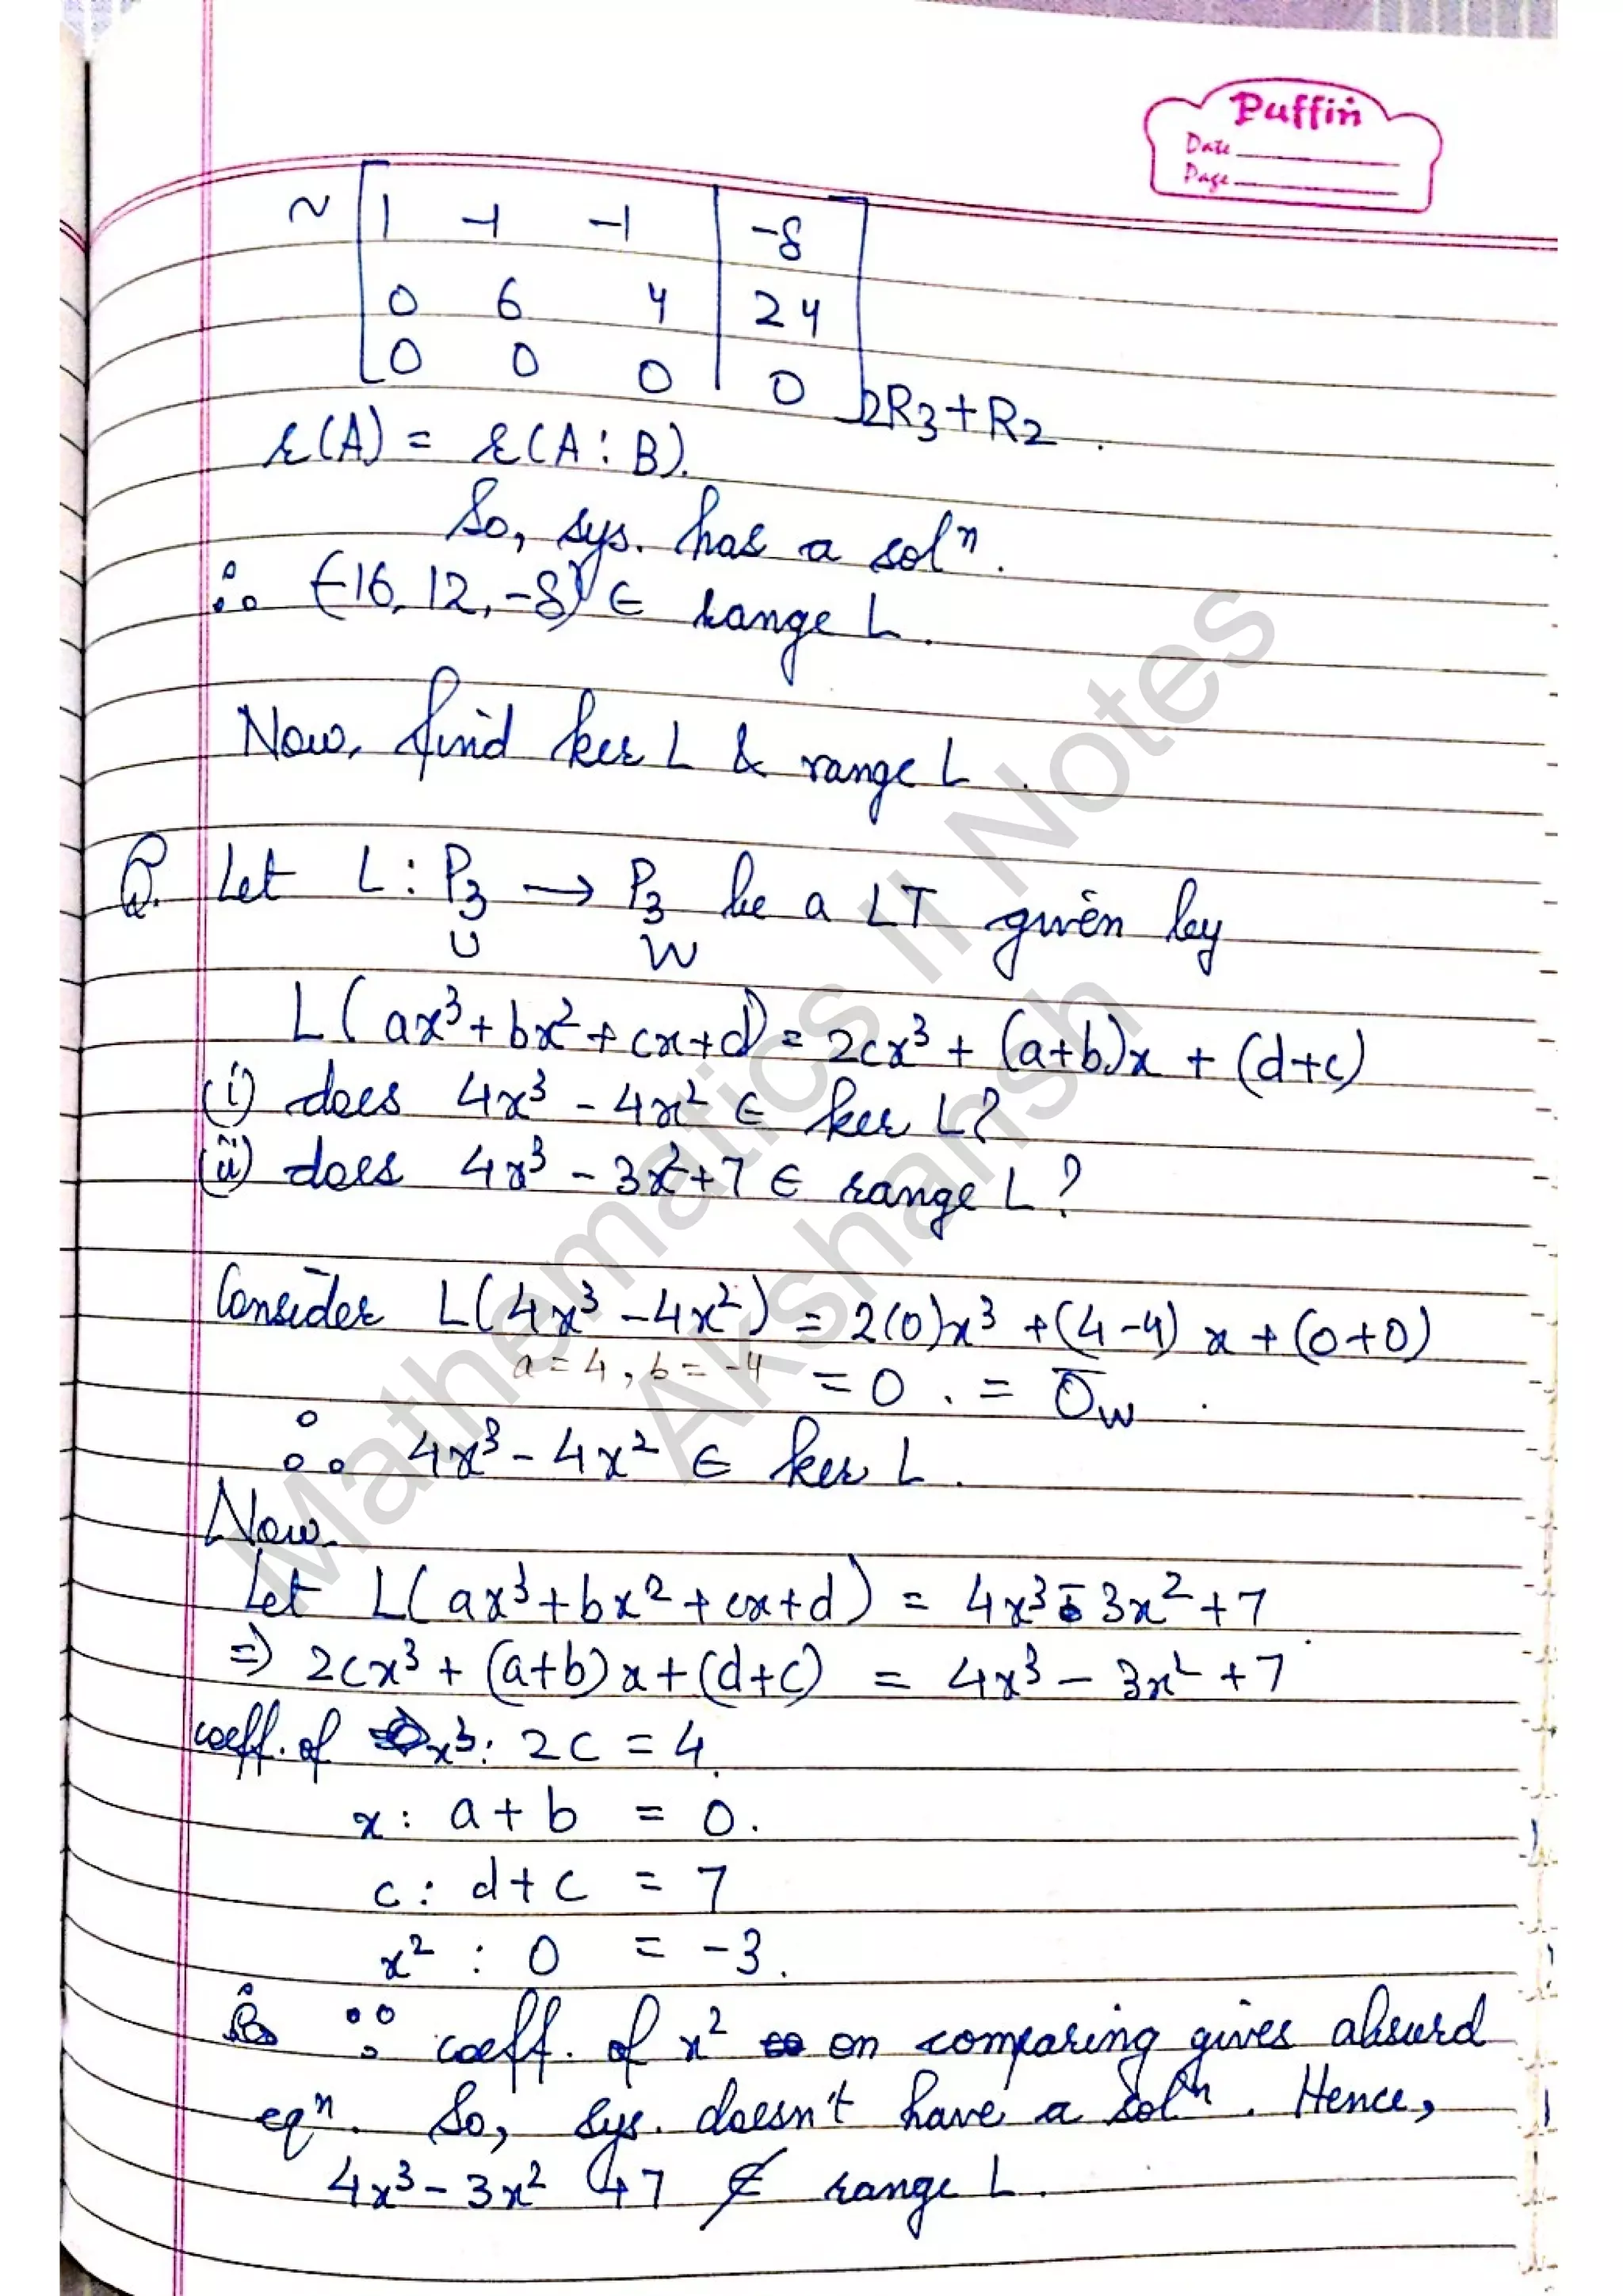 Puffin
Date
Page
~ [ 1 -1 -1 | -8 ]
0 6 4 | 24
0 0 0 | 0 ] 2R3+R2.
r(A) = r(A:B).
So, sys. has a solⁿ.
∴ (-16, 12, -8) ∈ range L.
Now, find ker L & range L.
Q. Let L: P₃ → P₃ be a LT given by
U W
L(ax³+bx²+cx+d) = 2cx³ + (a+b)x + (d+c)
(i) does 4x³ - 4x² ∈ ker L?
(ii) does 4x³ - 3x²+7 ∈ range L?
Consider L(4x³ - 4x²) = 2(0)x³ + (4-4) x + (0+0)
a = 4, b = -4 = 0. = 0̄w.
∴ 4x³ - 4x² ∈ ker L.
Now.
Let L(ax³+bx²+cx+d) = 4x³ - 3x²+7.
⇒ 2cx³ + (a+b)x+(d+c) = 4x³ - 3x² +7
coeff. of x³: 2c = 4.
x: a+b = 0.
c: d+c = 7
x² : 0 = -3.
∵ coeff. of x² on comparing gives absurd
eqⁿ. So, sys. doesn't have a solⁿ. Hence,
4x³ - 3x² +7 ∉ range L.
Mathematics II Notes
Akshansh